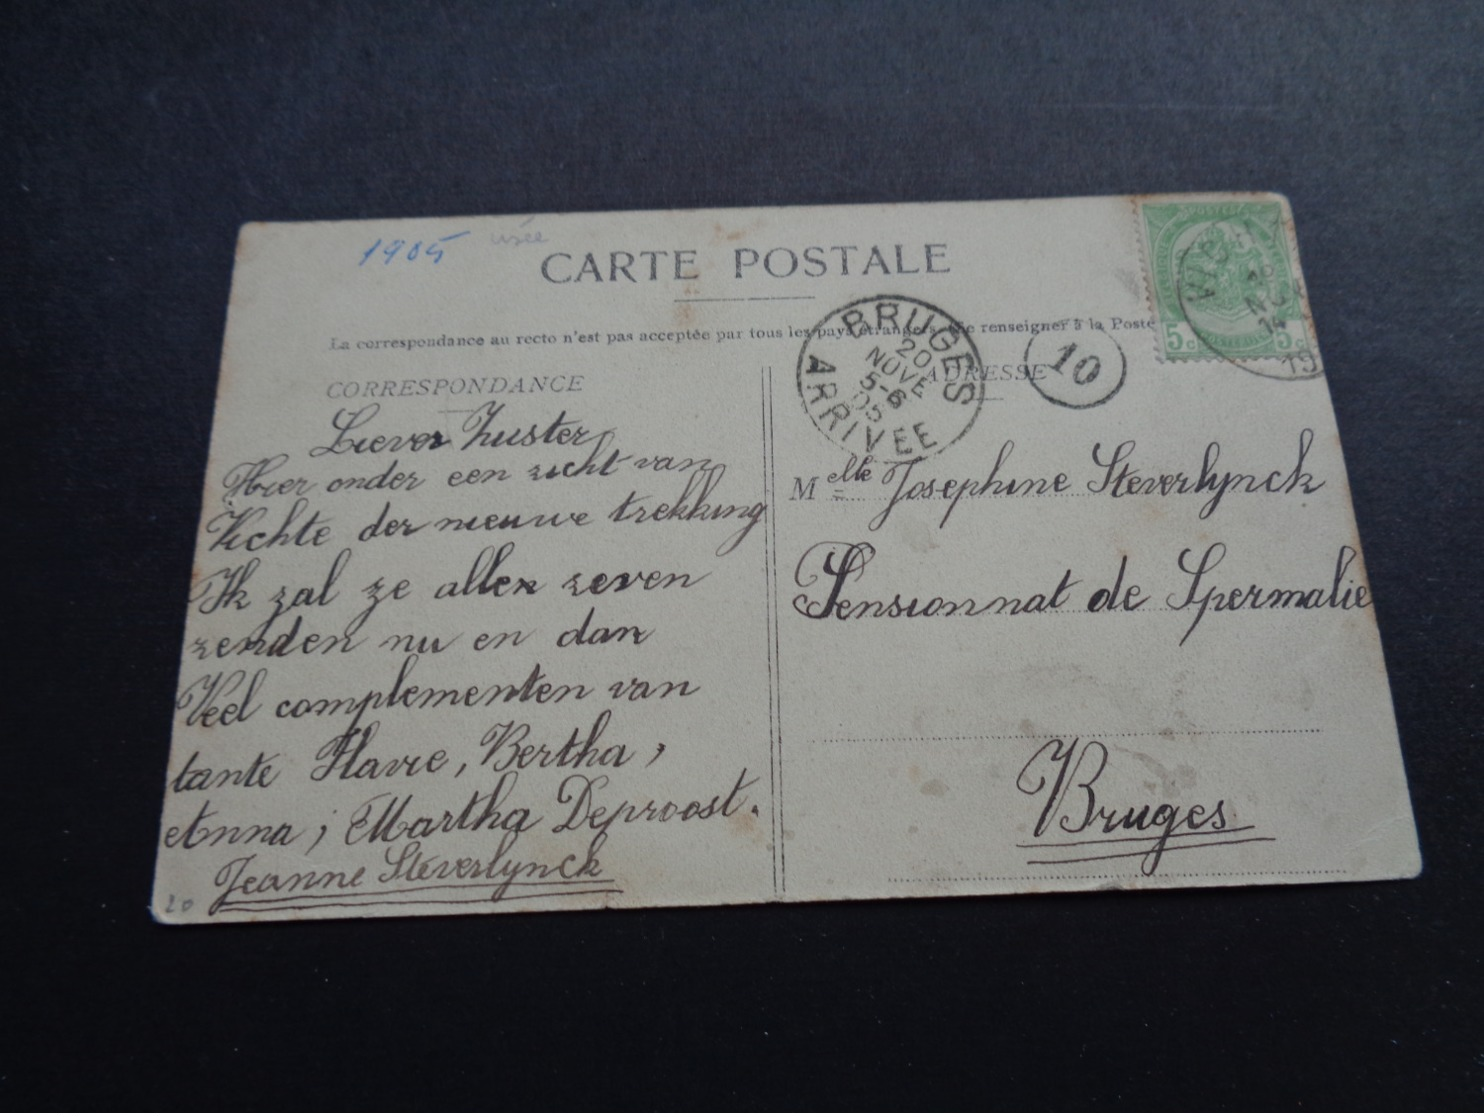 1905 usée
CARTE POSTALE
La correspondance au recto n'est pas acceptée par tous les pays étrangers. Se renseigner à la Poste
CORRESPONDANCE
Liever Zuster,
Hier onder een zicht van
Vichte der nieuwe trekking
Ik zal ze allen zeven
zenden nu en dan
Veel complementen van
tante Flavie, Bertha,
Anna, Martha Deproost.
Jeanne Steverlynck
20
ADRESSE
BRUGES
20
NOVE
5-6
05
ARRIVEE
10
POSTES
5c 5c
POSTERIJEN
VICHTE
20
NOV
19
Melle Josephine Steverlynck
Pensionnat de Spermalie
Bruges